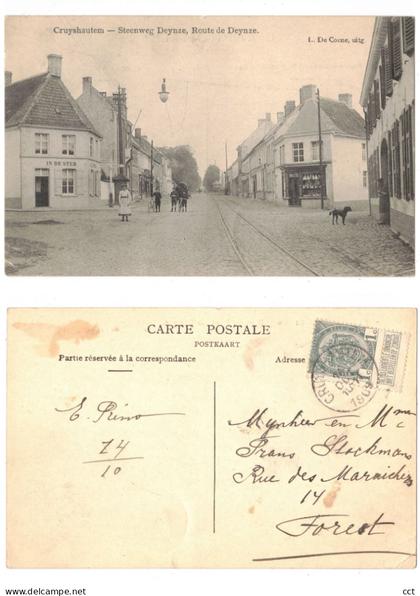 Cruyshautem — Steenweg Deynze, Route de Deynze.
L. De Corne, uitg
IN DE STER
CARTE POSTALE
POSTKAART
Partie réservée à la correspondance
Adresse
14
10
Mynheer en Mme
Frans Stockmans
Rue des Maraichers
14
Forest
1909
cct